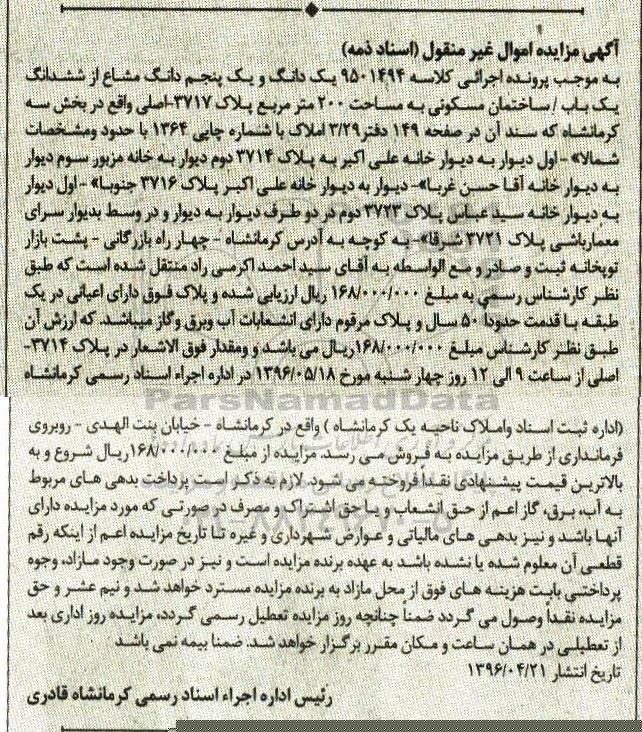 آگهی مزایده اموال غیر منقول (اسناد ذمه)
به موجب پرونده اجرائی کلاسه ۹۵۰۱۴۹۴ یک دانگ و یک پنجم دانگ مشاع از ششدانگ
یک باب / ساختمان مسکونی به مساحت ۲۰۰ متر مربع پلاک ۳۷۱۷-اصلی واقع در بخش سه
کرمانشاه که سند آن در صفحه ۱۴۹ دفتر ۳/۲۹ املاک با شماره چاپی ۱۳۶۴ با حدود ومشخصات
شمالا» -اول دیوار به دیوار خانه علی اکبر به پلاک ۳۷۱۴ دوم دیوار به خانه مزبور سوم دیوار
به دیوار خانه آقا حسن غربا»- دیوار به دیوار خانه علی اکبر پلاک ۳۷۱۶ جنوبا» -اول دیوار
به دیوار خانه سید عباس پلاک ۳۷۲۳ دوم در دو طرف دیوار به دیوار و در وسط بدیوار سرای
معمارباشی پلاک ۳۷۲۱ شرقا»- به کوچه به آدرس کرمانشاه - چهار راه بازرگانی - پشت بازار
توپخانه ثبت و صادر و مع الواسطه به آقای سید احمد اکرمی راد منتقل شده است که طبق
نظر کارشناس رسمی به مبلغ ۱۶۸/۰۰۰/۰۰۰ ریال ارزیابی شده و پلاک فوق دارای اعیانی در یک
طبقه با قدمت حدودا ۵۰ سال و پلاک مرقوم دارای انشعابات آب وبرق وگاز میباشد. که ارزش آن
طبق نظر کارشناس مبلغ ۱۶۸/۰۰۰/۰۰۰ریال می باشد و ومقدار فوق الاشعار در پلاک ۳۷۱۴-
اصلی از ساعت ۹ الی ۱۲ روز چهار شنبه مورخ ۱۳۹۶/۰۵/۱۸ در اداره اجراء اسناد رسمی کرمانشاه
ParsNamadData
(اداره ثبت اسناد واملاک ناحیه یک کرمانشاه ) واقع در کرمانشاه - خیابان بنت الهدی - روبروی
فرمانداری از طریق مزایده به فروش می رسد. مزایده از مبلغ ۱۶۸/۰۰۰/۰۰۰ریال شروع و به
بالاترین قیمت پیشنهادی نقداً فروخته می شود. لازم به ذکر است پرداخت بدهی های مربوط
به آب، برق، گاز اعم از حق انشعاب و یا حق اشتراک و مصرف در صورتی که مورد مزایده دارای
آنها باشد و نیز بدهی های مالیاتی و عوارض شهرداری و غیره تا تاریخ مزایده اعم از اینکه رقم
قطعی آن معلوم شده یا نشده باشد به عهده برنده مزایده است و نیز در صورت وجود مازاد، وجوه
پرداختی بابت هزینه های فوق از محل مازاد به برنده مزایده مسترد خواهد شد و نیم عشر و حق
مزایده نقداً وصول می گردد ضمناً چنانچه روز مزایده تعطیل رسمی گردد، مزایده روز اداری بعد
از تعطیلی در همان ساعت و مکان مقرر برگزار خواهد شد. ضمنا بیمه نمی باشد
تاریخ انتشار ۱۳۹۶/۰۴/۲۱
رئیس اداره اجراء اسناد رسمی کرمانشاه قادری